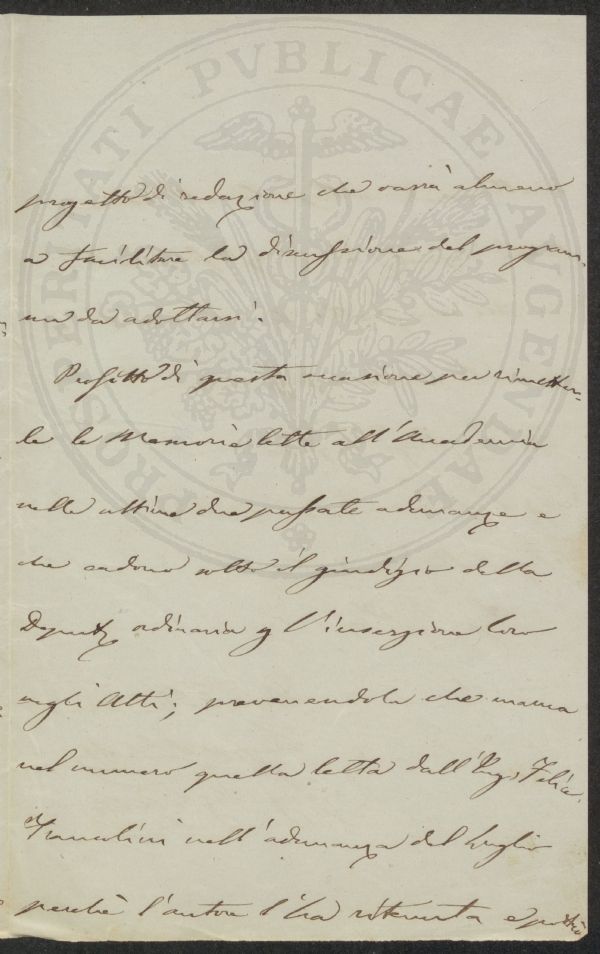 PROSPERITATI PVBLICAE AVGENDAE
progetto di redazione che varrà almeno
a facilitare la discussione del program-
ma da adottarsi.
Profitto di questa occasione per rimetter-
le le Memorie lette all'Accademia
nelle ultime due passate adunanze e
che cadono sotto il giudizio della
Deputaz ordinaria p l'inserzione loro
negli Atti; prevenendola che manca
nel numero quella letta dall'Ing. Felice
Francolini nell'adunanza del luglio
perchè l'autore l'ha ritenuta e potrà